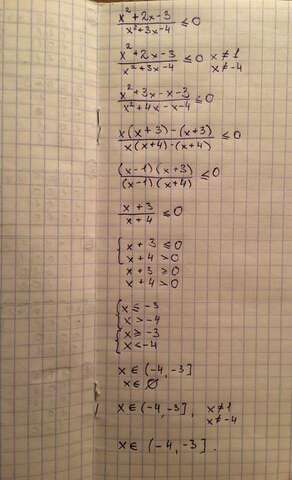 x²+2x-3 / x²+3x-4 ≤0
x²+2x-3 / x²+3x-4 ≤0 x≠1 x≠-4
x²+3x-x-3 / x²+4x-x-4 ≤0
x(x+3)-(x+3) / x(x+4)-(x+4) ≤0
(x-1)(x+3) / (x-1)(x+4) ≤0
x+3 / x+4 ≤0
{ x+3≤0
x+4>0
x+3≥0
x+4>0
{ x≤-3
x>-4
{ x≥-3
x<-4
x∈(-4,-3]
x∈∅
x∈(-4,-3], x≠1 x≠-4
x∈(-4,-3].